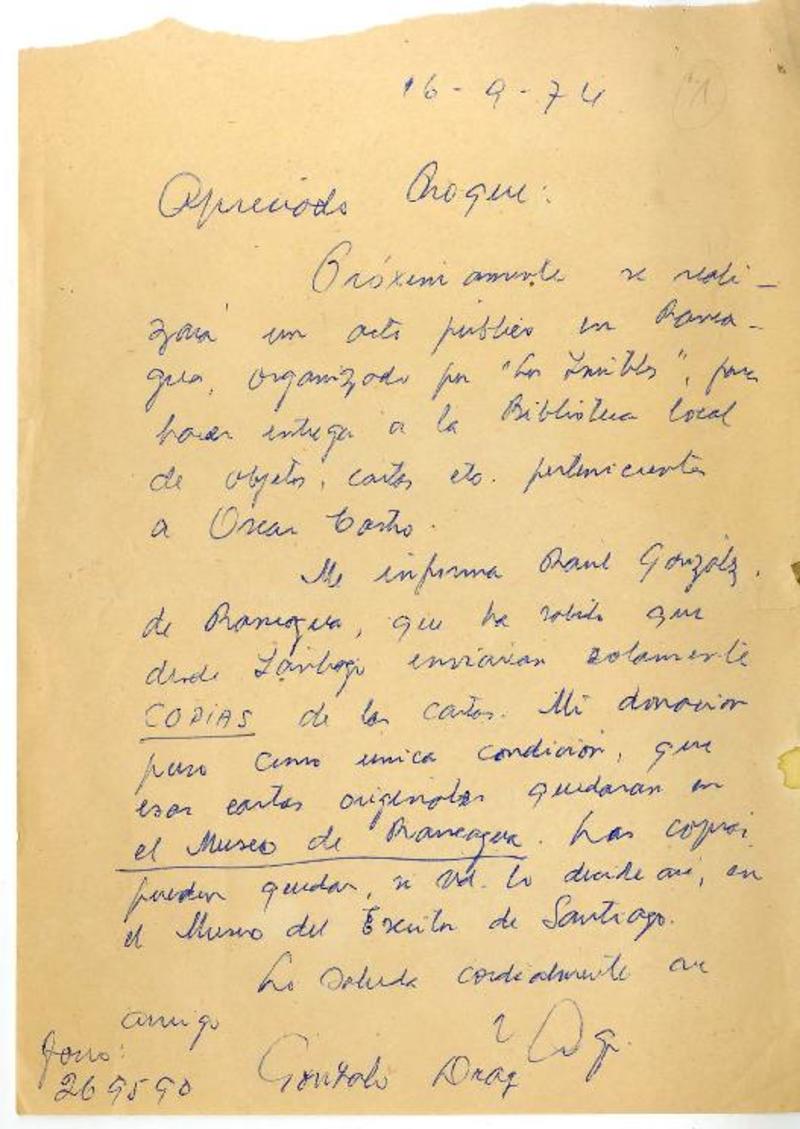 16-9-74
1
Apreciado Roque:
Próximamente se reali-
zará un acto público en Ranca-
gua, organizado por "Los Inútiles", para
hacer entrega a la Biblioteca local
de objetos, cartas etc. pertenecientes
a Oscar Castro.
Me informa Raúl González,
de Rancagua, que ha sabido que
desde Santiago enviarán solamente
COPIAS de las cartas. Mi donación
puso como única condición, que
esas cartas originales quedaran en
el Museo de Rancagua. Las copias
pueden quedar, si Ud. lo decide así, en
el Museo del Escritor de Santiago.
Lo saluda cordialmente su
amigo
Gonzalo Drago
fono:
269590